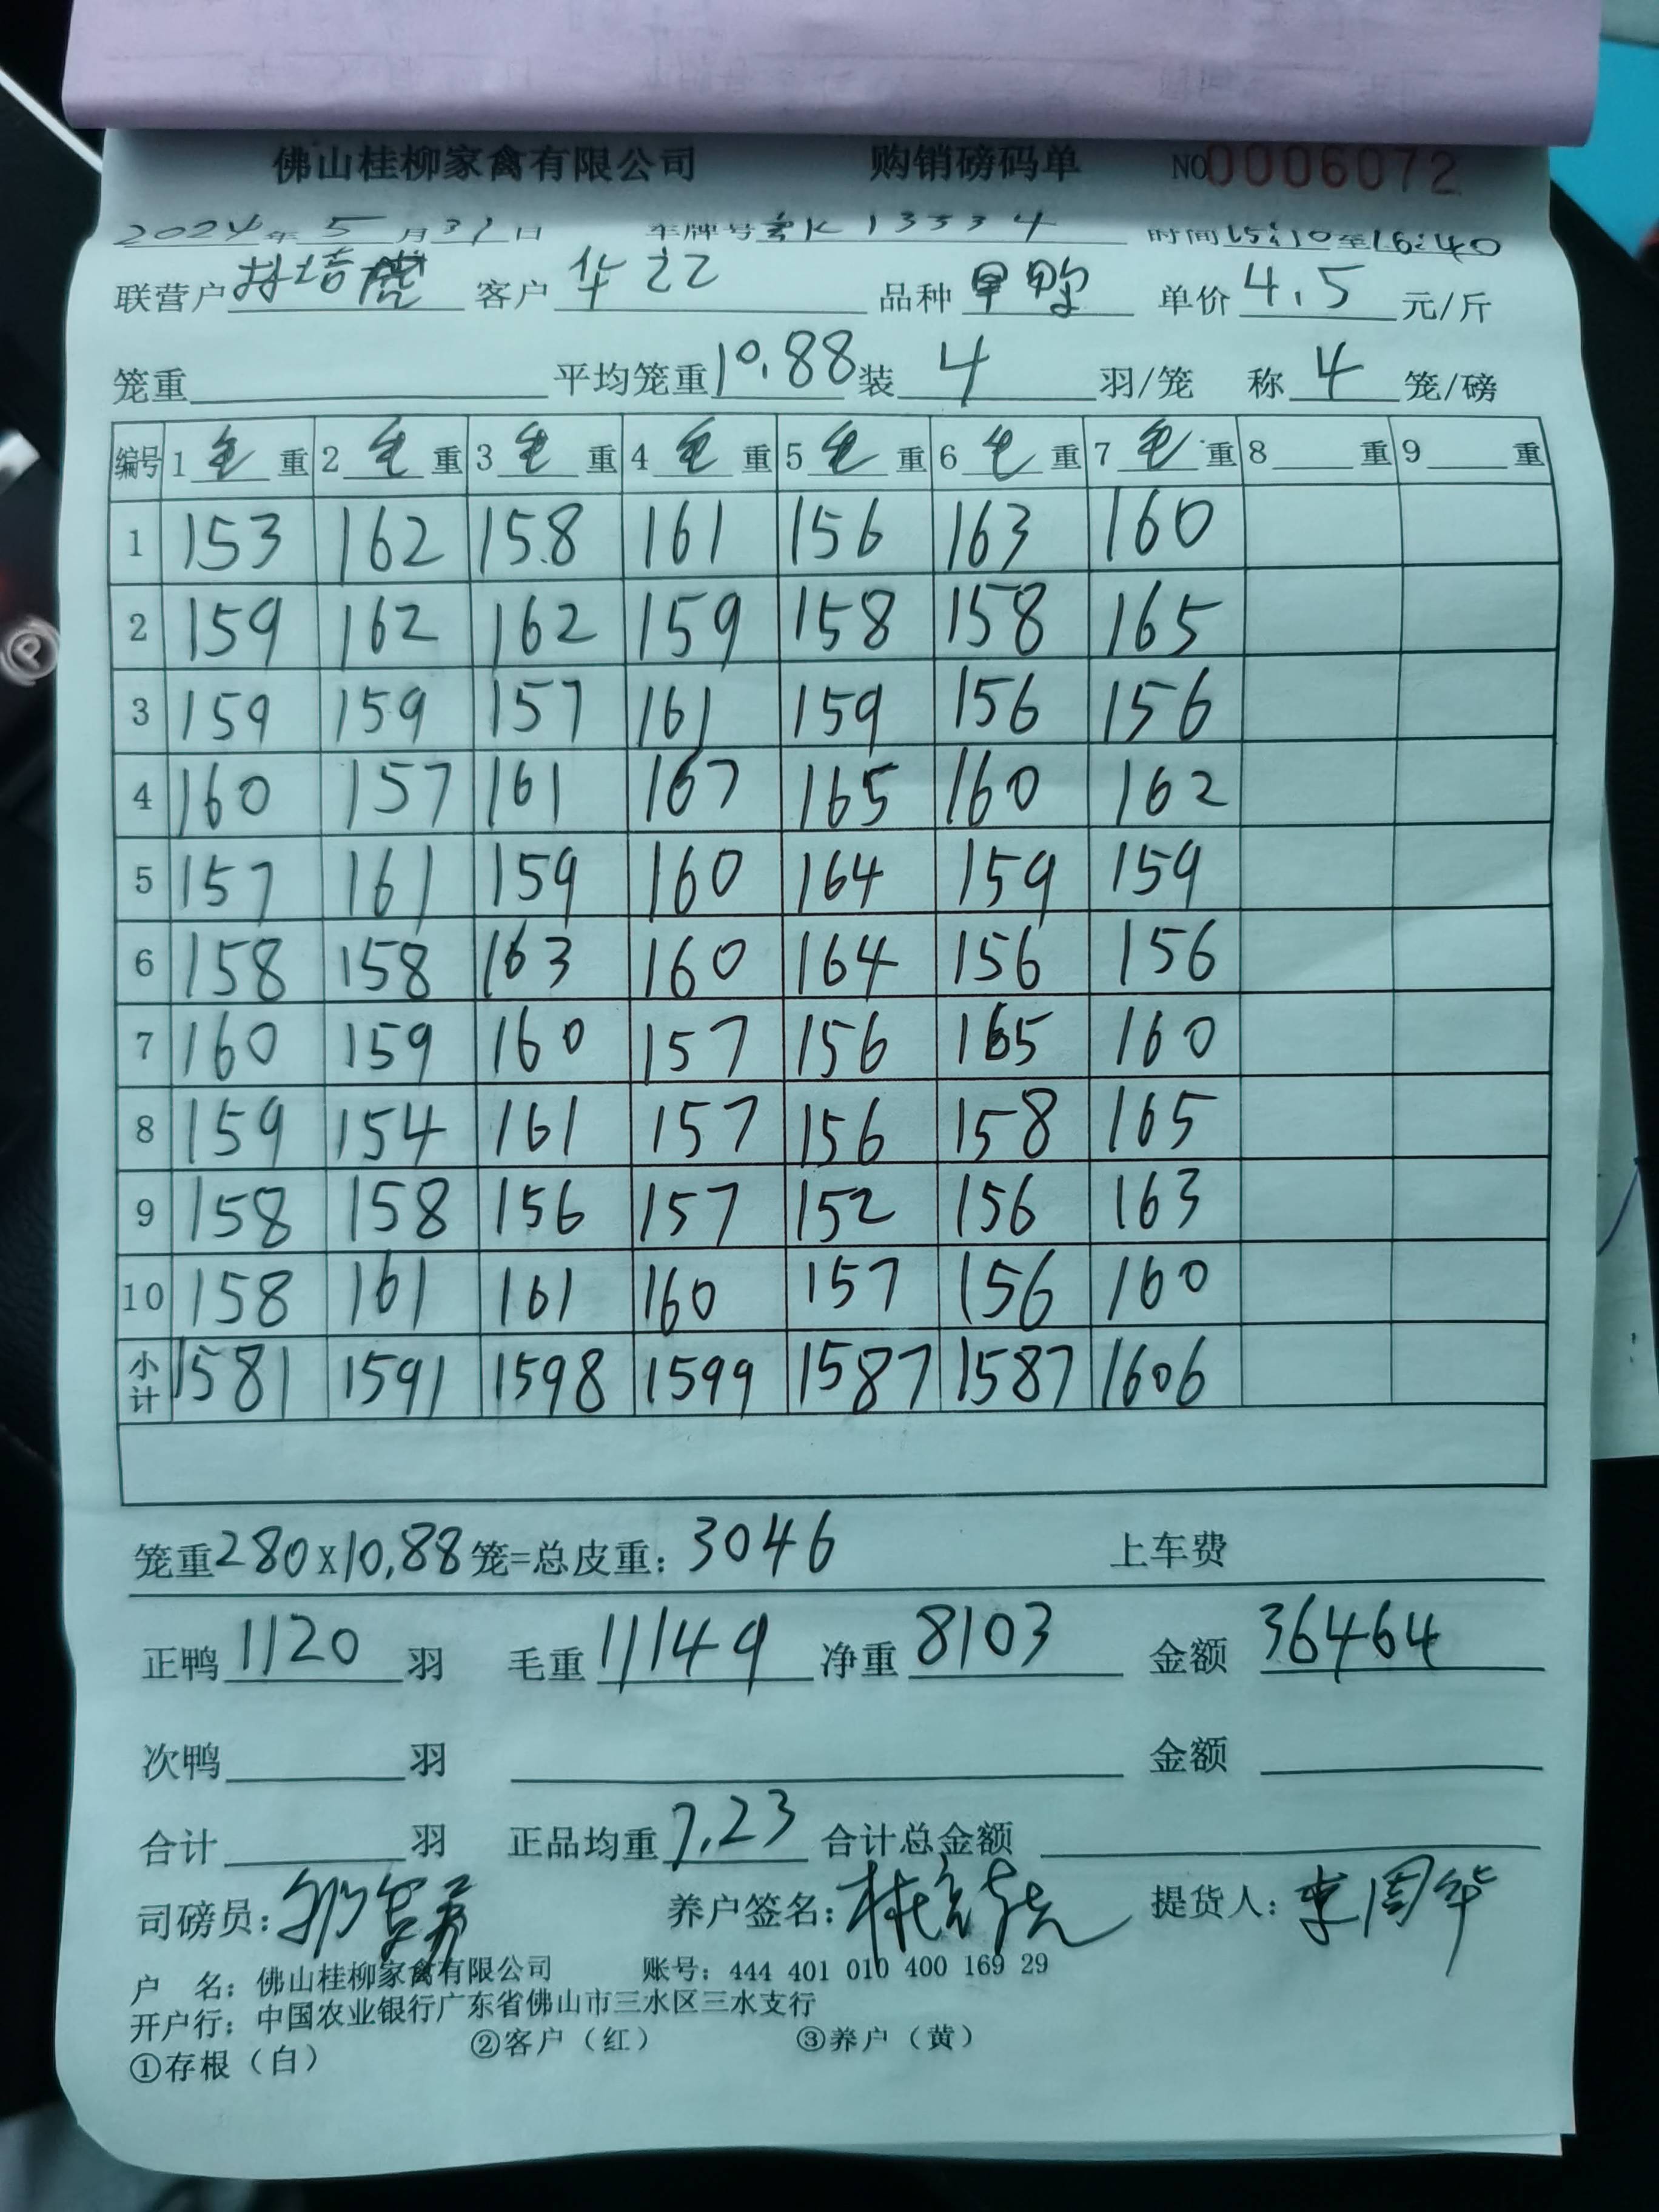 佛山桂柳家禽有限公司 购销磅码单 NO0006072
2024年5月31日 车牌号 K13334 时间15:10至16:40
联营户林培 客户华 品种 单价4.5元/斤
笼重 平均笼重10.88装4羽/笼 称4笼/磅
编号 1毛重 2毛重 3毛重 4毛重 5毛重 6毛重 7毛重 8重 9重
1 153 162 158 161 156 163 160
2 159 162 162 159 158 158 165
3 159 159 157 161 159 156 156
4 160 157 161 167 165 160 162
5 157 161 159 160 164 159 159
6 158 158 163 160 164 156 156
7 160 159 160 157 156 165 160
8 159 154 161 157 156 158 165
9 158 158 156 157 152 156 163
10 158 161 161 160 157 156 160
小计 1581 1591 1598 1599 1587 1587 1606
笼重280x10.88笼=总皮重：3046 上车费
正鸭1120羽 毛重11149 净重8103 金额36464
次鸭 羽 金额
合计 羽 正品均重7.23 合计总金额
司磅员： 养户签名：林 提货人：李周华
户 名：佛山桂柳家禽有限公司 账号：444 401 010 400 169 29
开户行：中国农业银行广东省佛山市三水区三水支行
①存根（白） ②客户（红） ③养户（黄）